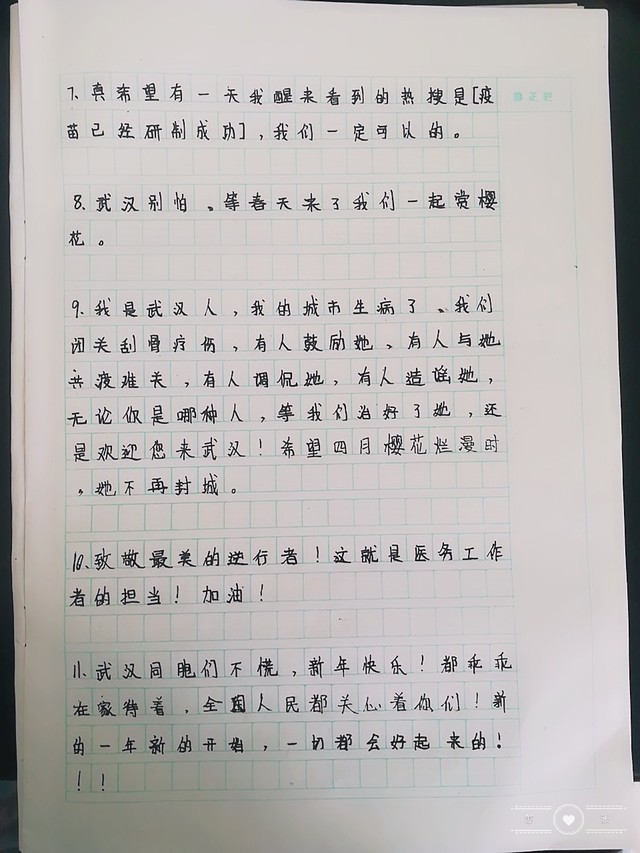 7、真希望有一天我醒来看到的热搜是[疫
苗已经研制成功]，我们一定可以的。
8、武汉别怕。等春天来了我们一起赏樱
花。
9、我是武汉人，我的城市生病了。我们
闭关刮骨疗伤，有人鼓励她、有人与她
共疫难关，有人调侃她，有人造谣她，
无论你是哪种人，等我们治好了她，还
是欢迎您来武汉！希望四月樱花烂漫时
，她不再封城。
10、致敬最美的逆行者！这就是医务工作
者的担当！加油！
11、武汉同胞们不慌，新年快乐！都乖乖
在家待着，全国人民都关心着你们！新
的一年新的开始，一切都会好起来的！
！！